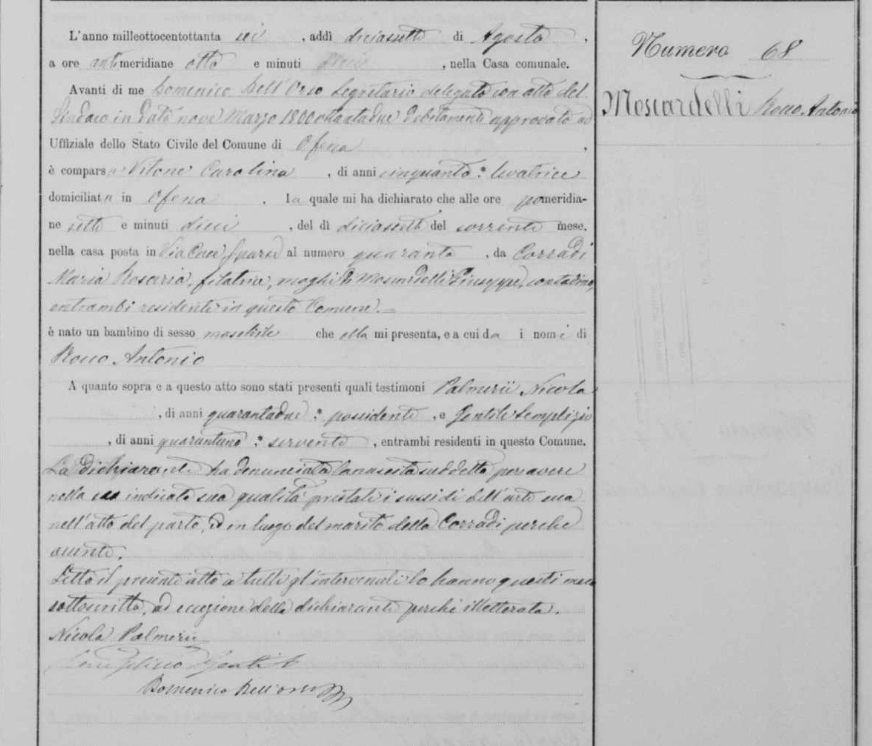 L'anno milleottocentottanta sei , addì diciassette di Agosto ,
a ore antimeridiane otto e minuti dieci , nella Casa comunale.
Avanti di me Domenico Dell'Orso Segretario delegato con atto del
Sindaco in data nove Marzo 1800ottantadue debitamente approvato ed
Uffiziale dello Stato Civile del Comune di Ofena ,
è comparsa Vitone Carolina , di anni cinquanta : levatrice
domiciliata in Ofena , la quale mi ha dichiarato che alle ore pomeridia-
ne sette e minuti dieci , del dì diciassette del corrente mese,
nella casa posta in Via Case Sparse al numero quaranta , da Corradi
Maria Rosaria, filatrice, moglie di Moscardelli Giuseppe, contadino,
entrambi residenti in questo Comune. —
è nato un bambino di sesso maschile che ella mi presenta, e a cui dà i nomi di
Rocco Antonio
A quanto sopra e a questo atto sono stati presenti quali testimoni Palmerii Nicola
, di anni quarantadue : possidente , e Gentile Semplizio
, di anni quarantuno : servente , entrambi residenti in questo Comune.
La dichiarante ha denunciata la nascita suddetta per avere
nella indicata sua qualità prestati i sussidi dell'arte sua
nell'atto del parto, ed in luogo del marito della Corradi perchè
assente.
Letto il presente atto a tutti gl'intervenuti lo hanno questi meco
sottoscritto, ad eccezione della dichiarante perchè illetterata.
Nicola Palmerii
Semplizio Gentile
Domenico Dell'Orso
Numero 68
Moscardelli Rocco Antonio